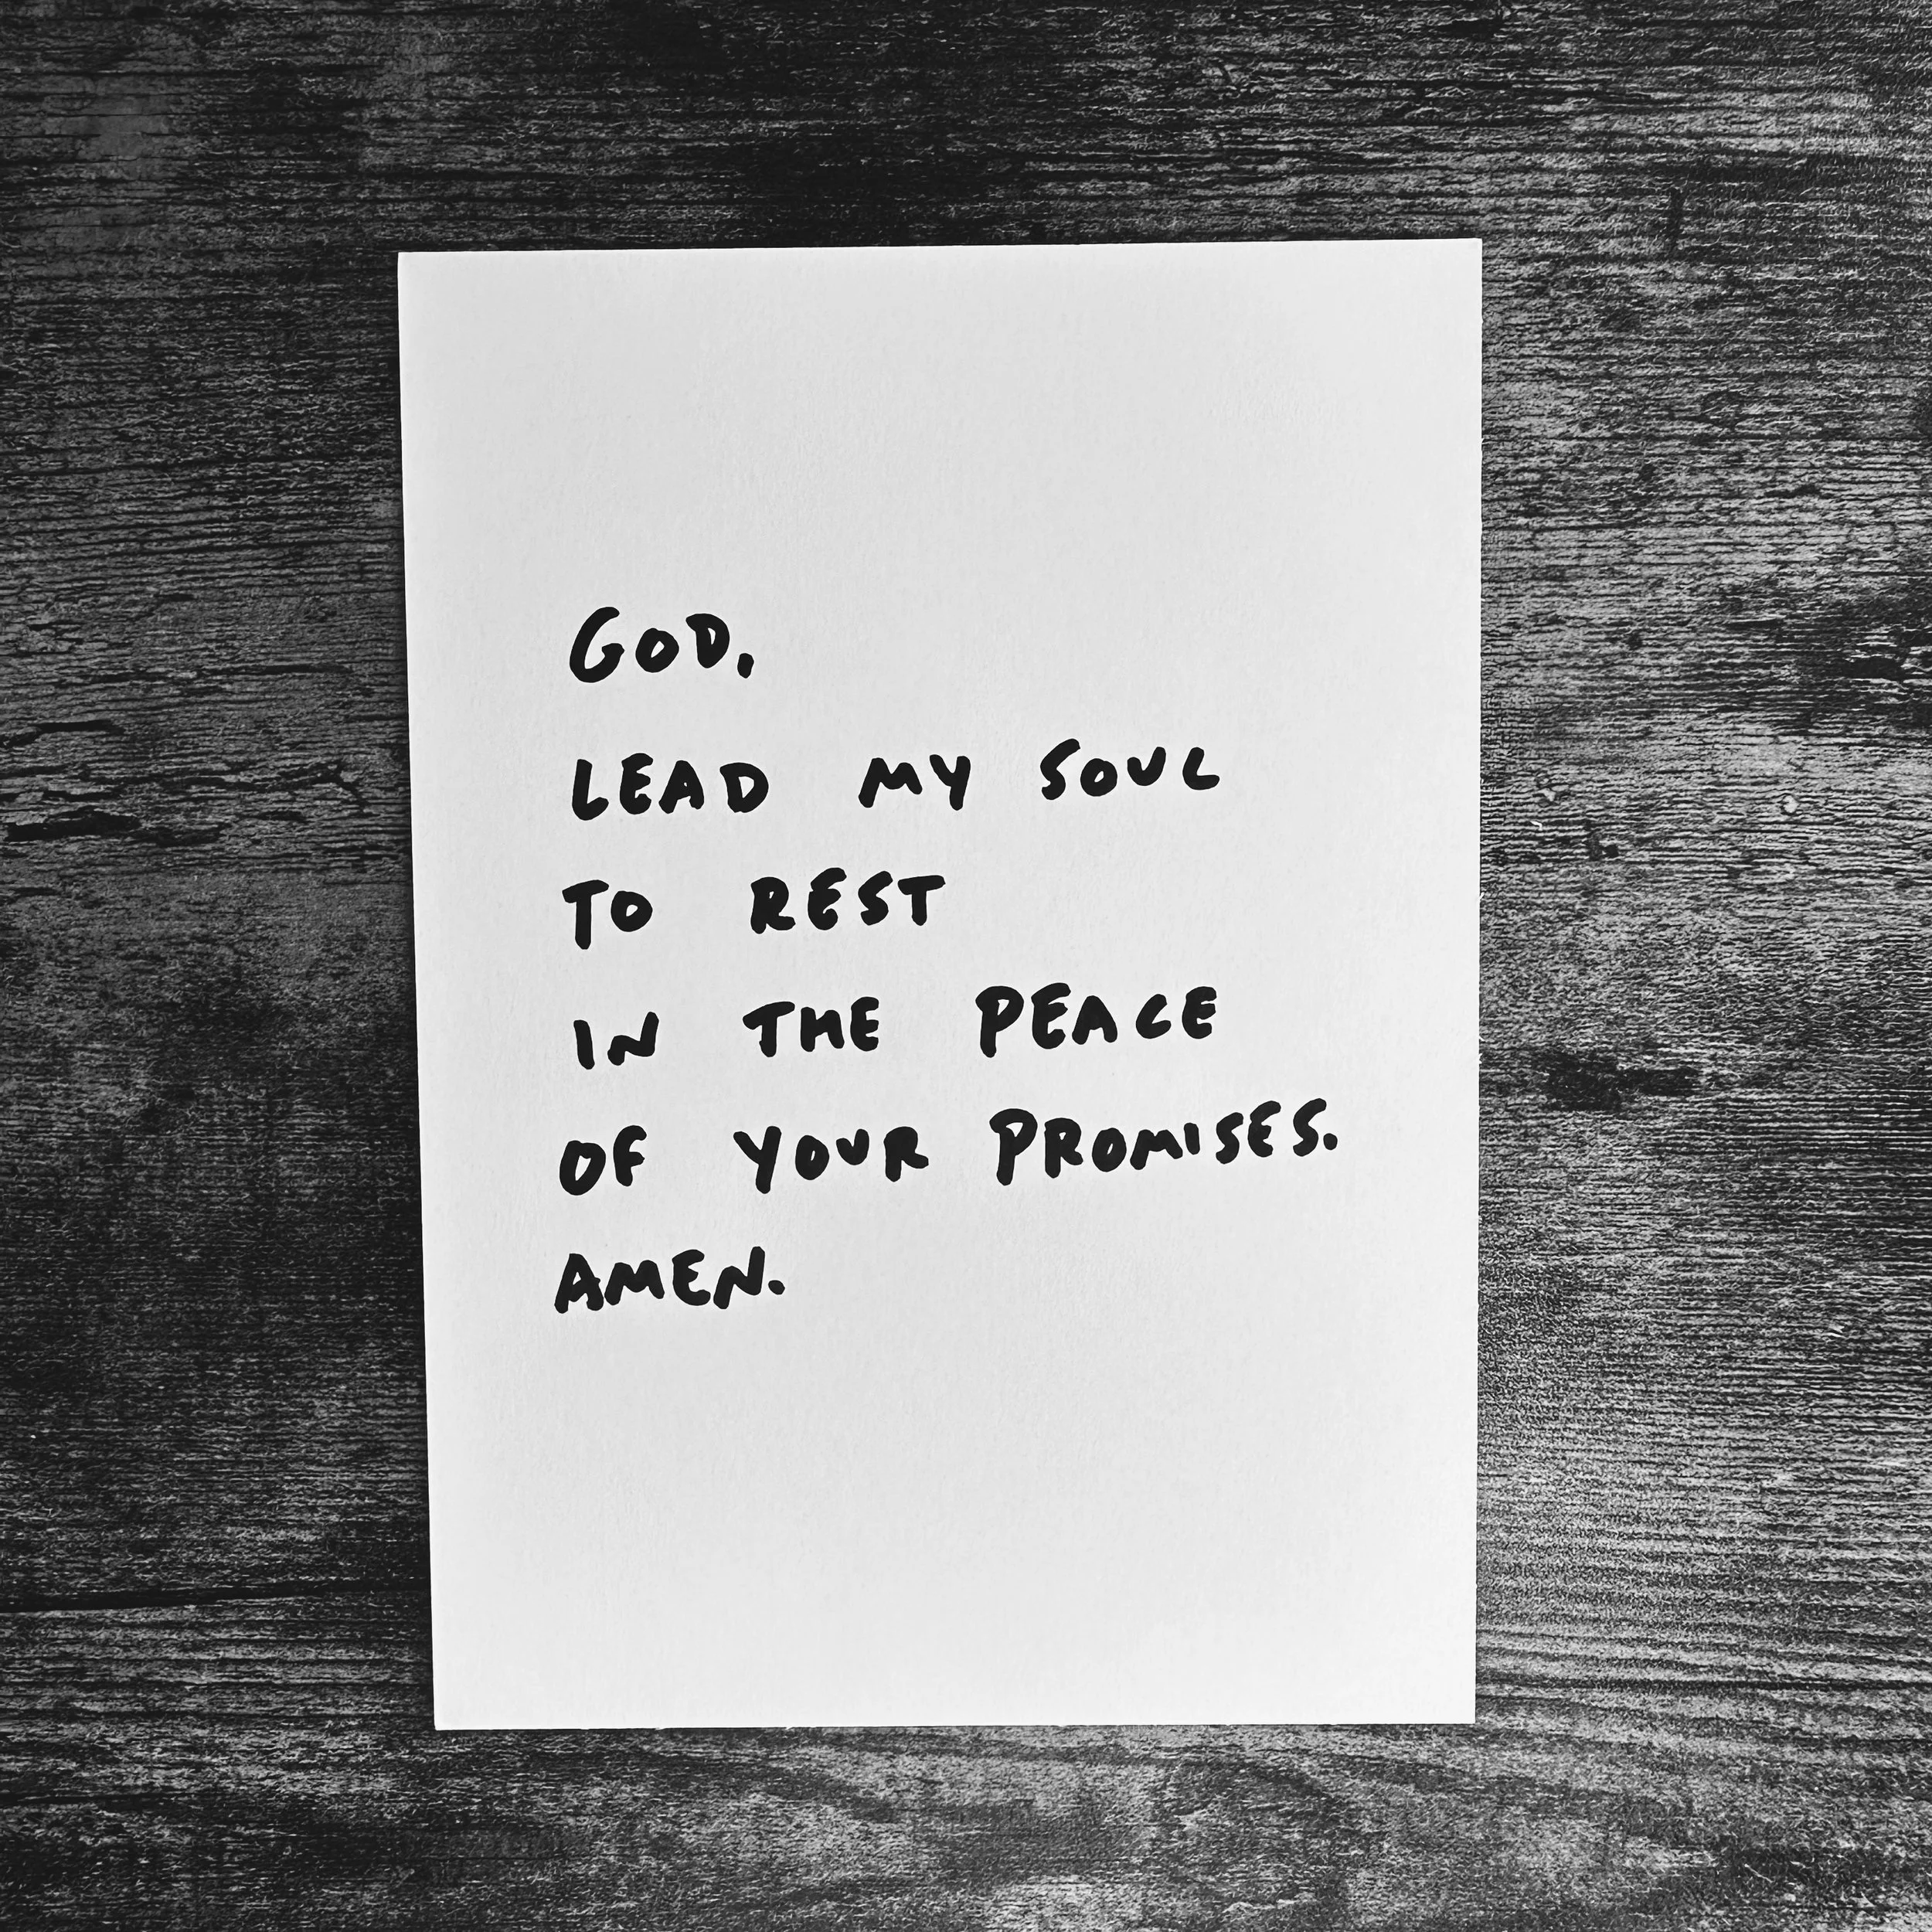 GOD,
LEAD MY SOUL
TO REST
IN THE PEACE
OF YOUR PROMISES.
AMEN.